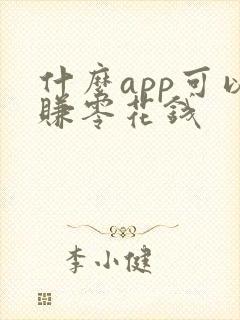 什麼app可以
賺零花錢
李小健